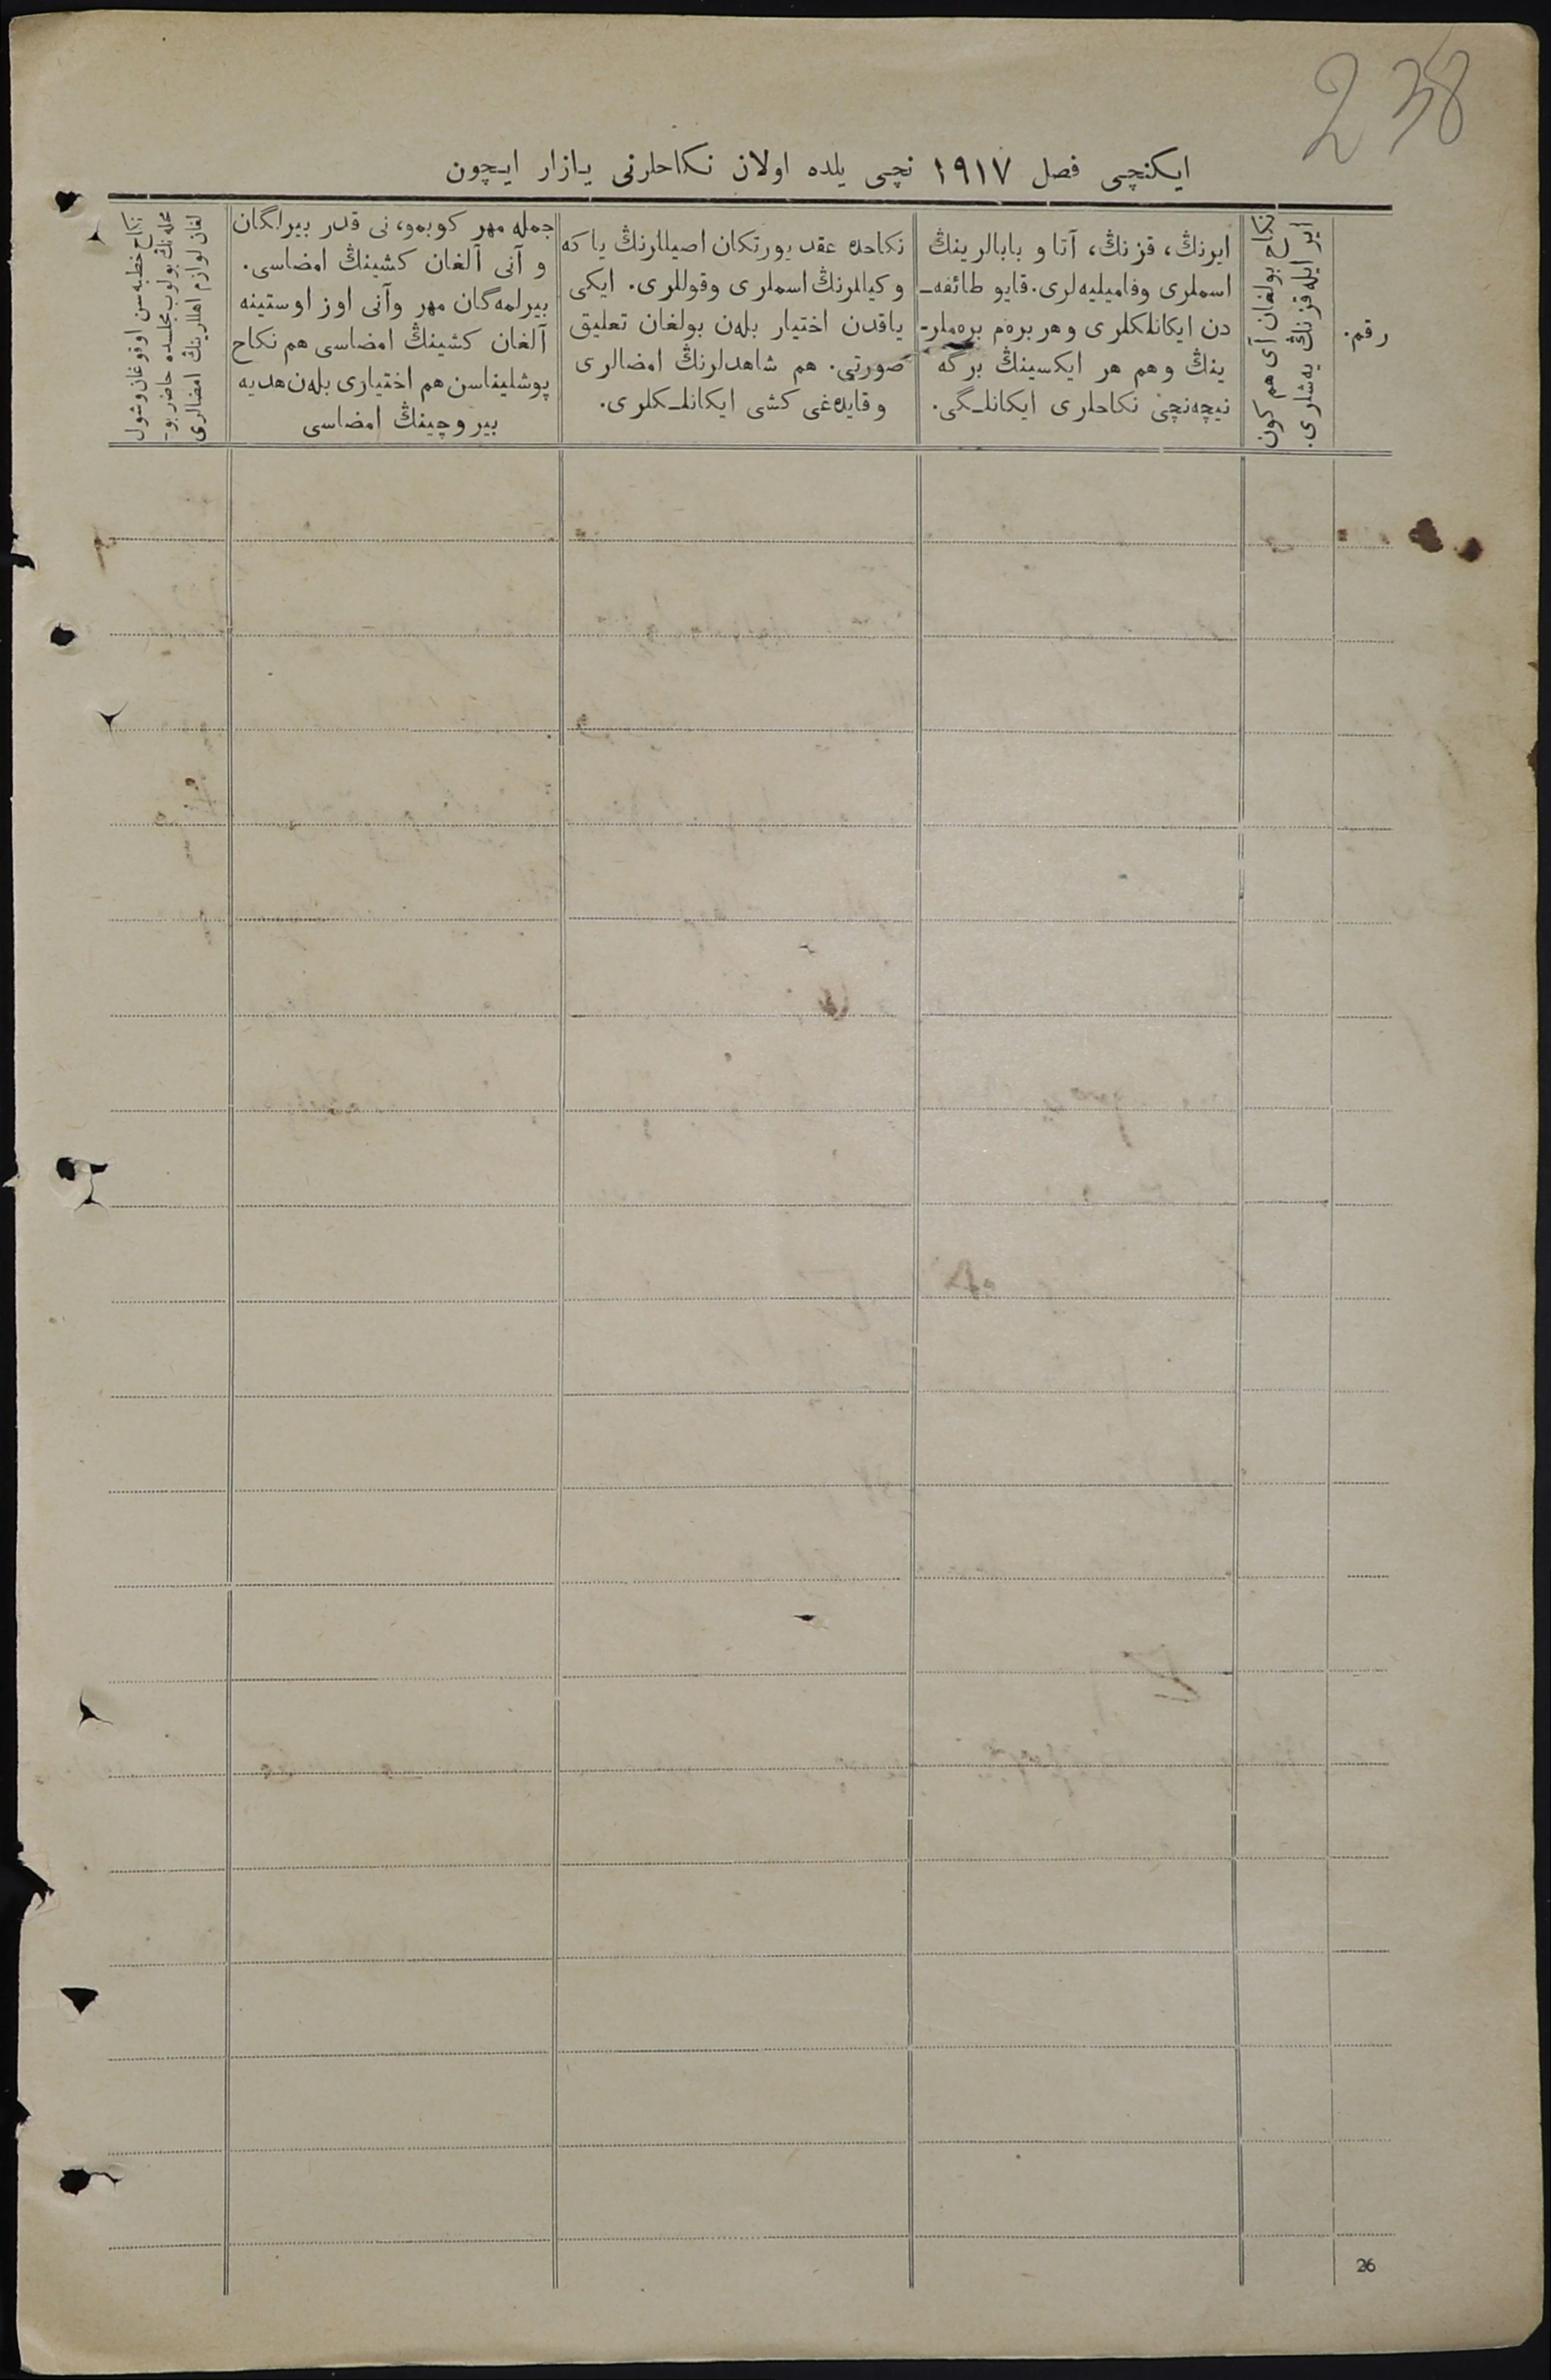 238
ایکنچی فصل ١٩١٧ نچی یلده اولان نکاحلرنی یازار ایچون
رقم.
ایر ایله قزنڭ یه‌شلری.
نکاح بولغان آی هم کون
ایرنڭ، قزنڭ، آتا و بابالرینڭ
اسملری وفامیلیه‌لری. قایو طائفه‌ـ
دن ایکانلکلری وهر بره‌م بره‌ملر-
ینڭ وهم هر ایکسینڭ برگه
نیچه‌نچی نکاحلری ایکانلـگی.
نکاحده عقد یورتکان اصیللرنڭ یا که
وکیللرنڭ اسملری وقوللری. ایکی
یاقدن اختیار بله‌ن بولغان تعلیق
صورتی. هم شاهدلرنڭ امضالری
وقایده‌غی کشی ایکانلـکلری.
جمله مهر کوبمو، نی قدر بیرلگان
و آنی آلغان کشینڭ امضاسی.
بیرلمه‌گان مهر وآنی اوز اوستینه
آلغان کشینڭ امضاسی هم نکاح
پوشلیناسن هم اختیاری بله‌ن هدیه
بیروچینڭ امضاسی
نکاح خطبه‌سن اوقوغان وشول
محله‌نڭ بولوب مجلسده حاضر بو-
لغان لوازم اهللرینڭ امضالری
26